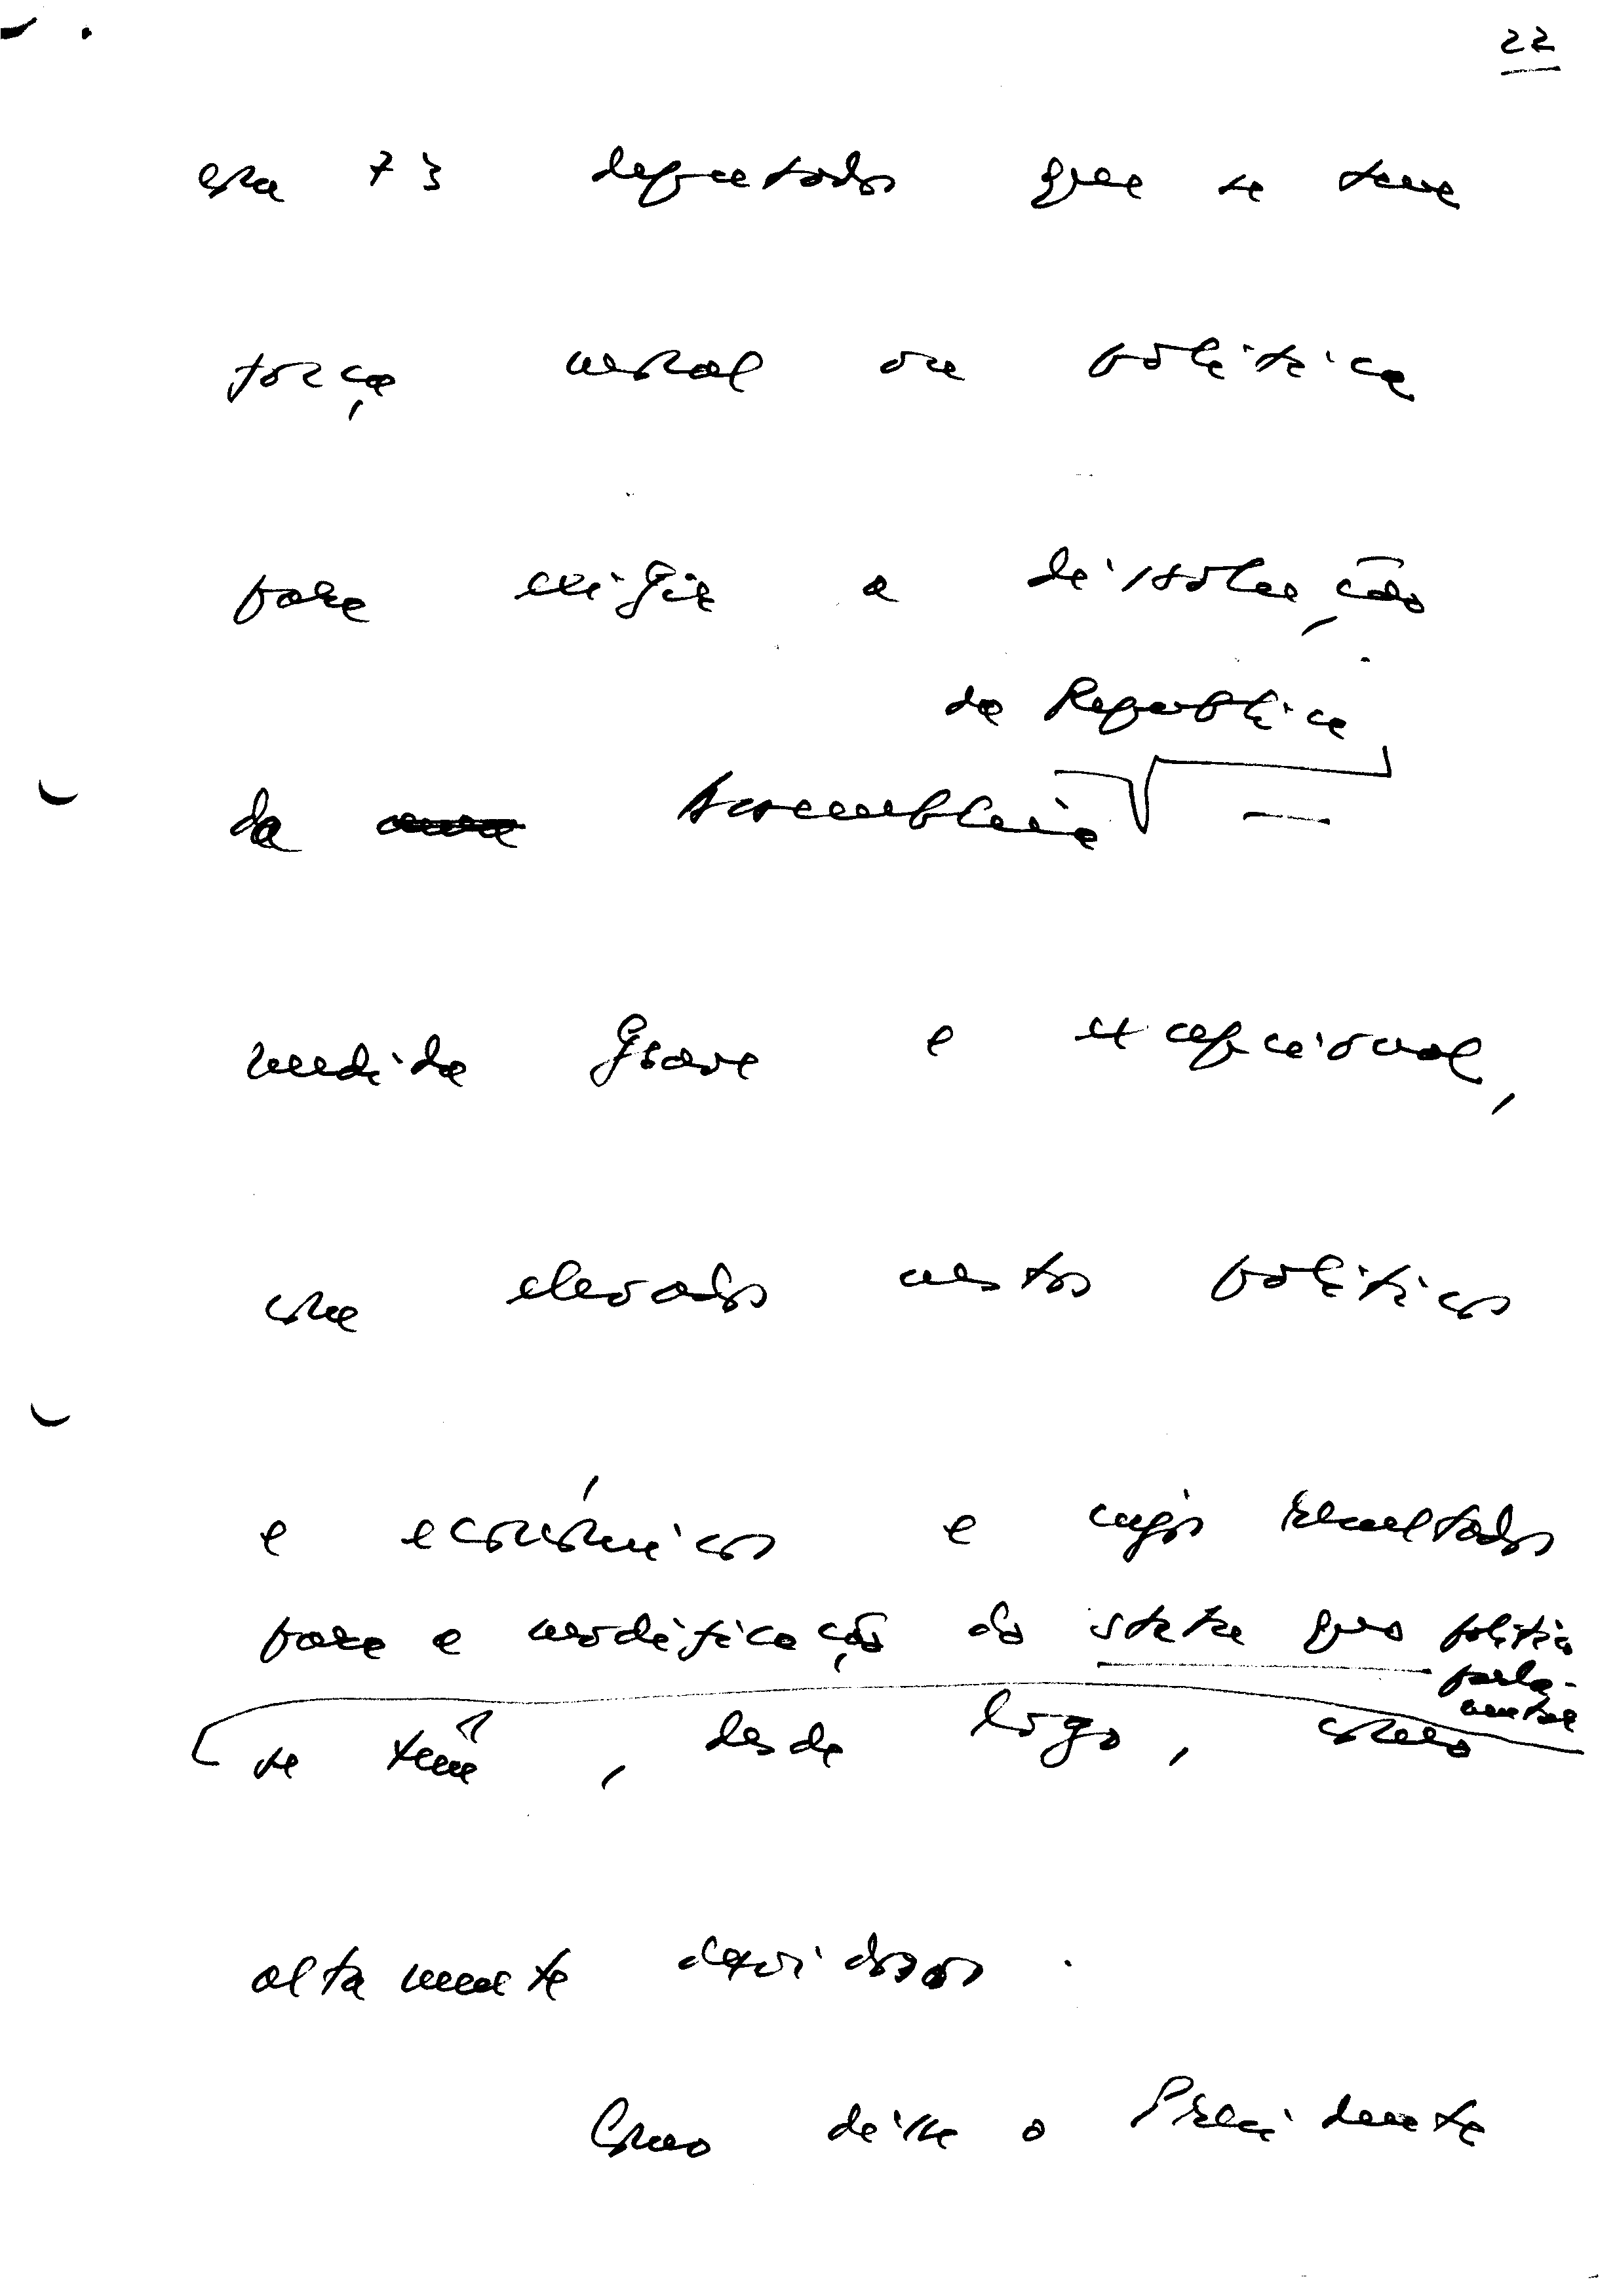 22
com 73 deputados que se tem
força moral ou política
para exigir a dissolução
da República
da Assembleia —
medida grave e excepcional,
com elevados custos políticos
e económicos e cujos resultados
para a modificação do statu quo político
parla-
mentar
se têm, desde logo, como
altamente duvidosos.
Como disse o Presidente